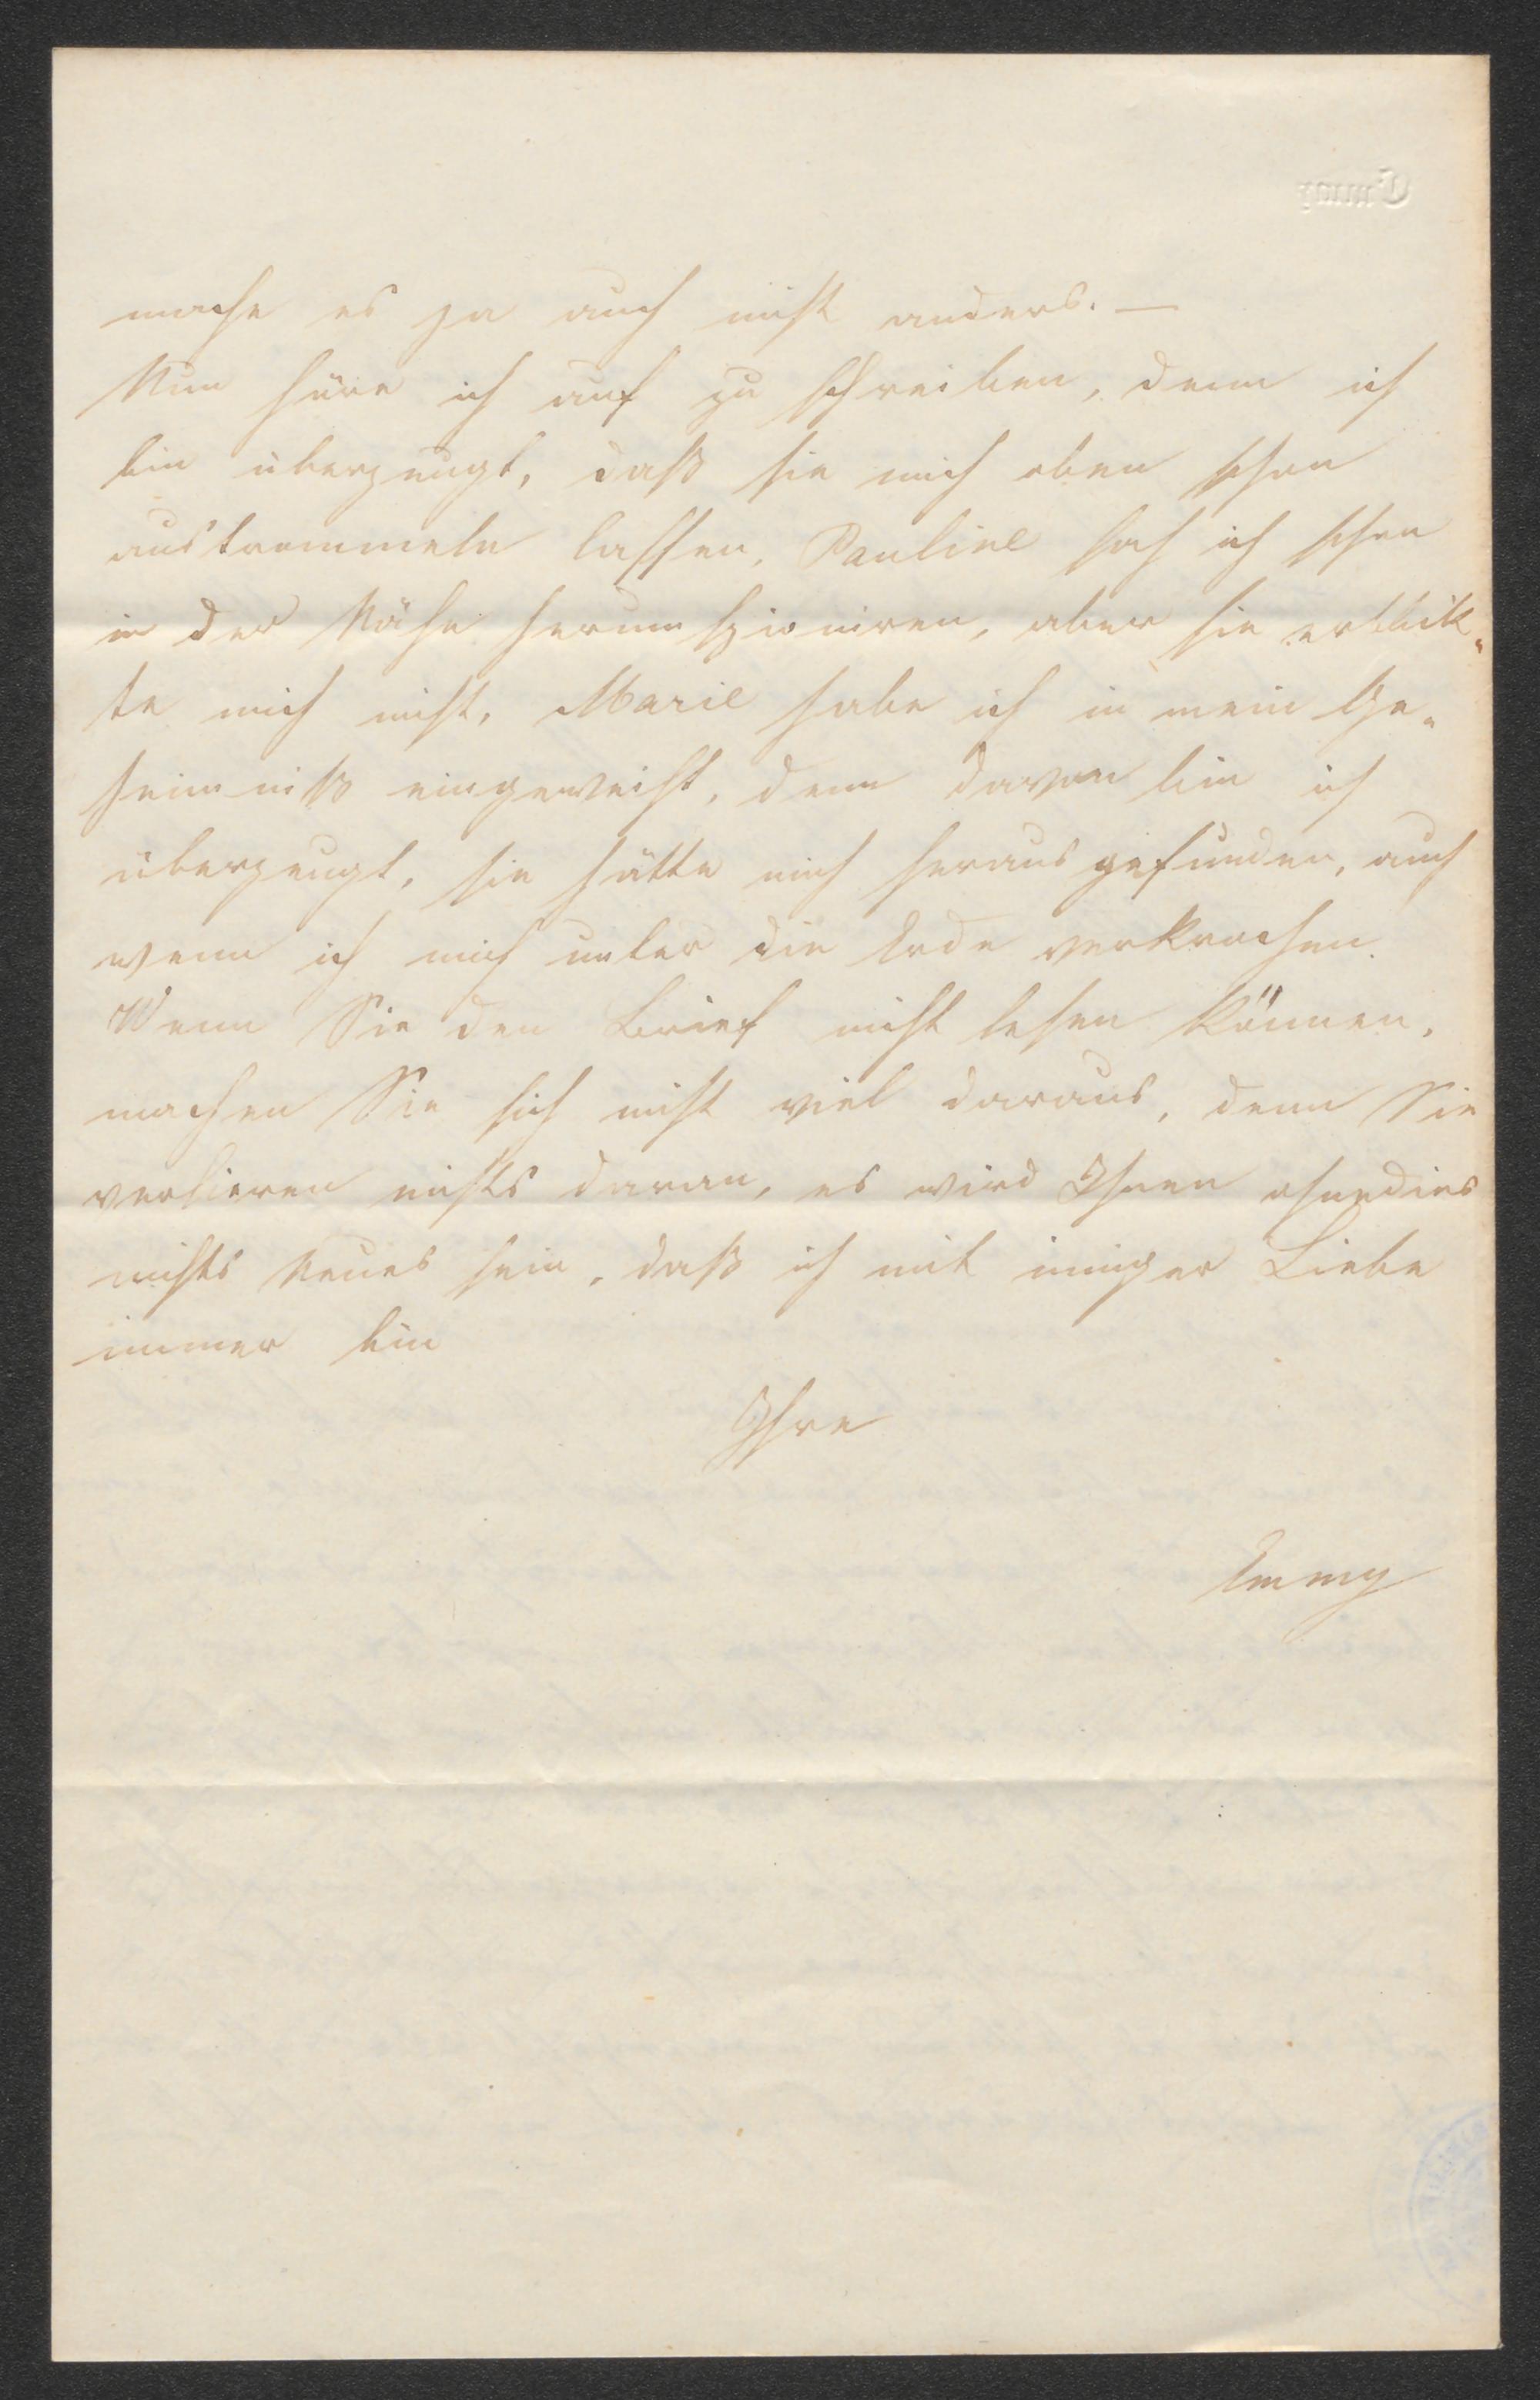 mache es ja auch nicht anders. —
Nun höre ich auf zu schreiben, denn ich
bin überzeugt, daß sie mich oben schon
austrommeln lassen, Pauline sah ich schon
in der Nähe herum spioniren, aber sie erblik-
te mich nicht, Marie habe ich in mein Ge-
heimniß eingeweiht, denn davon bin ich
überzeugt, sie hätte mich heraus gefunden, auch
wenn ich mich unter die Erde verkrochen.
Wenn Sie den Brief nicht lesen können,
machen Sie sich nicht viel daraus, denn Sie
verlieren nichts daran, es wird Ihnen ohnedies
nichts Neues sein, daß ich mit inniger Liebe
immer bin
Ihre
Emmy